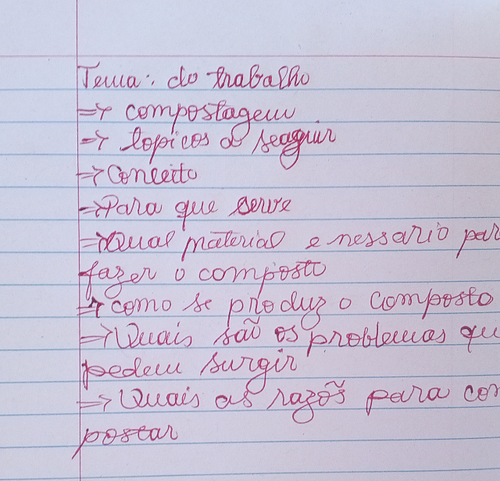 Tema: do trabalho
=> compostagem
=> topicos a seaguir
=> Conceito
=> Para que serve
=> Qual material e nessario par
fazer o composto
=> como se produz o composto
=> Quais são os problemas qu
pedem surgir
=> Quais as razõs para com
postar